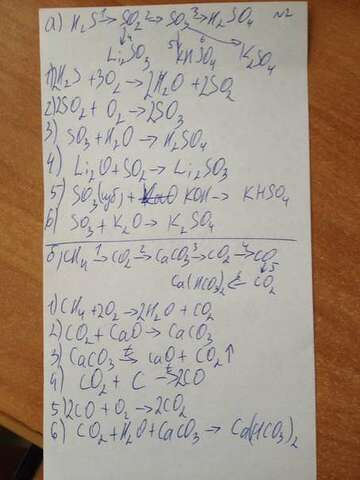 а) H₂S →¹ SO₂ →² SO₃ →³ H₂SO₄ №2
↓⁴ ⁵ ⁶
Li₂SO₃ KHSO₄ K₂SO₄
1) 2H₂S + 3O₂ → 2H₂O + 2SO₂
2) 2SO₂ + O₂ → 2SO₃
3) SO₃ + H₂O → H₂SO₄
4) Li₂O + SO₂ → Li₂SO₃
5) SO₃(изб) + KOH → KHSO₄
6) SO₃ + K₂O → K₂SO₄
б) CH₄ →¹ CO₂ →² CaCO₃ →³ CO₂ →⁴ CO
↓5
Ca(HCO₃)₂ ←⁶ CO₂
1) CH₄ + 2O₂ → 2H₂O + CO₂
2) CO₂ + CaO → CaCO₃
3) CaCO₃ →ᵗ CaO + CO₂↑
4) CO₂ + C →ᵗ 2CO
5) 2CO + O₂ → 2CO₂
6) CO₂ + H₂O + CaCO₃ → Ca(HCO₃)₂